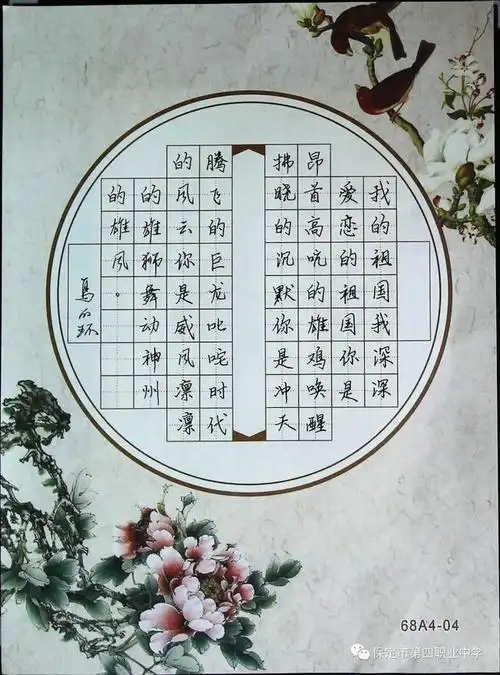 我的祖国我深深
爱恋的祖国你是
昂首高吭的雄鸡唤醒
拂晓的沉默你是冲天
腾飞的巨龙叱咤时代
的风云你是威风凛凛
的雄狮舞动神州
的雄风。
68A4-04
保定市第四职业中学